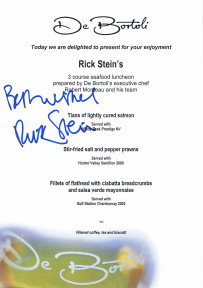 De Bortoli
Today we are delighted to present for your enjoyment
Rick Stein's
3 course seafood luncheon
prepared by De Bortoli's executive chef
Robert Monteau and his team
Best wishes
Rick Stein
Tians of lightly cured salmon
Served with
Prestige NV
Stir-fried salt and pepper prawns
Served with
Hunter Valley Semillon 2009
Fillets of flathead with ciabatta breadcrumbs
and salsa verde mayonnaise
Served with
Gulf Station Chardonnay 2002
Filtered coffee, tea and biscotti
De Bortoli